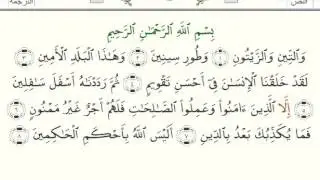 النص
الترجمة
بِسْمِ ٱللَّهِ ٱلرَّحْمَٰنِ ٱلرَّحِيمِ
وَٱلتِّينِ وَٱلزَّيْتُونِ ١ وَطُورِ سِينِينَ ٢ وَهَٰذَا ٱلْبَلَدِ ٱلْأَمِينِ ٣
لَقَدْ خَلَقْنَا ٱلْإِنسَٰنَ فِىٓ أَحْسَنِ تَقْوِيمٍ ٤ ثُمَّ رَدَدْنَٰهُ أَسْفَلَ سَٰفِلِينَ
٥ إِلَّا ٱلَّذِينَ ءَامَنُوا۟ وَعَمِلُوا۟ ٱلصَّٰلِحَٰتِ فَلَهُمْ أَجْرٌ غَيْرُ مَمْنُونٍ ٦
فَمَا يُكَذِّبُكَ بَعْدُ بِٱلدِّينِ ٧ أَلَيْسَ ٱللَّهُ بِأَحْكَمِ ٱلْحَٰكِمِينَ ٨